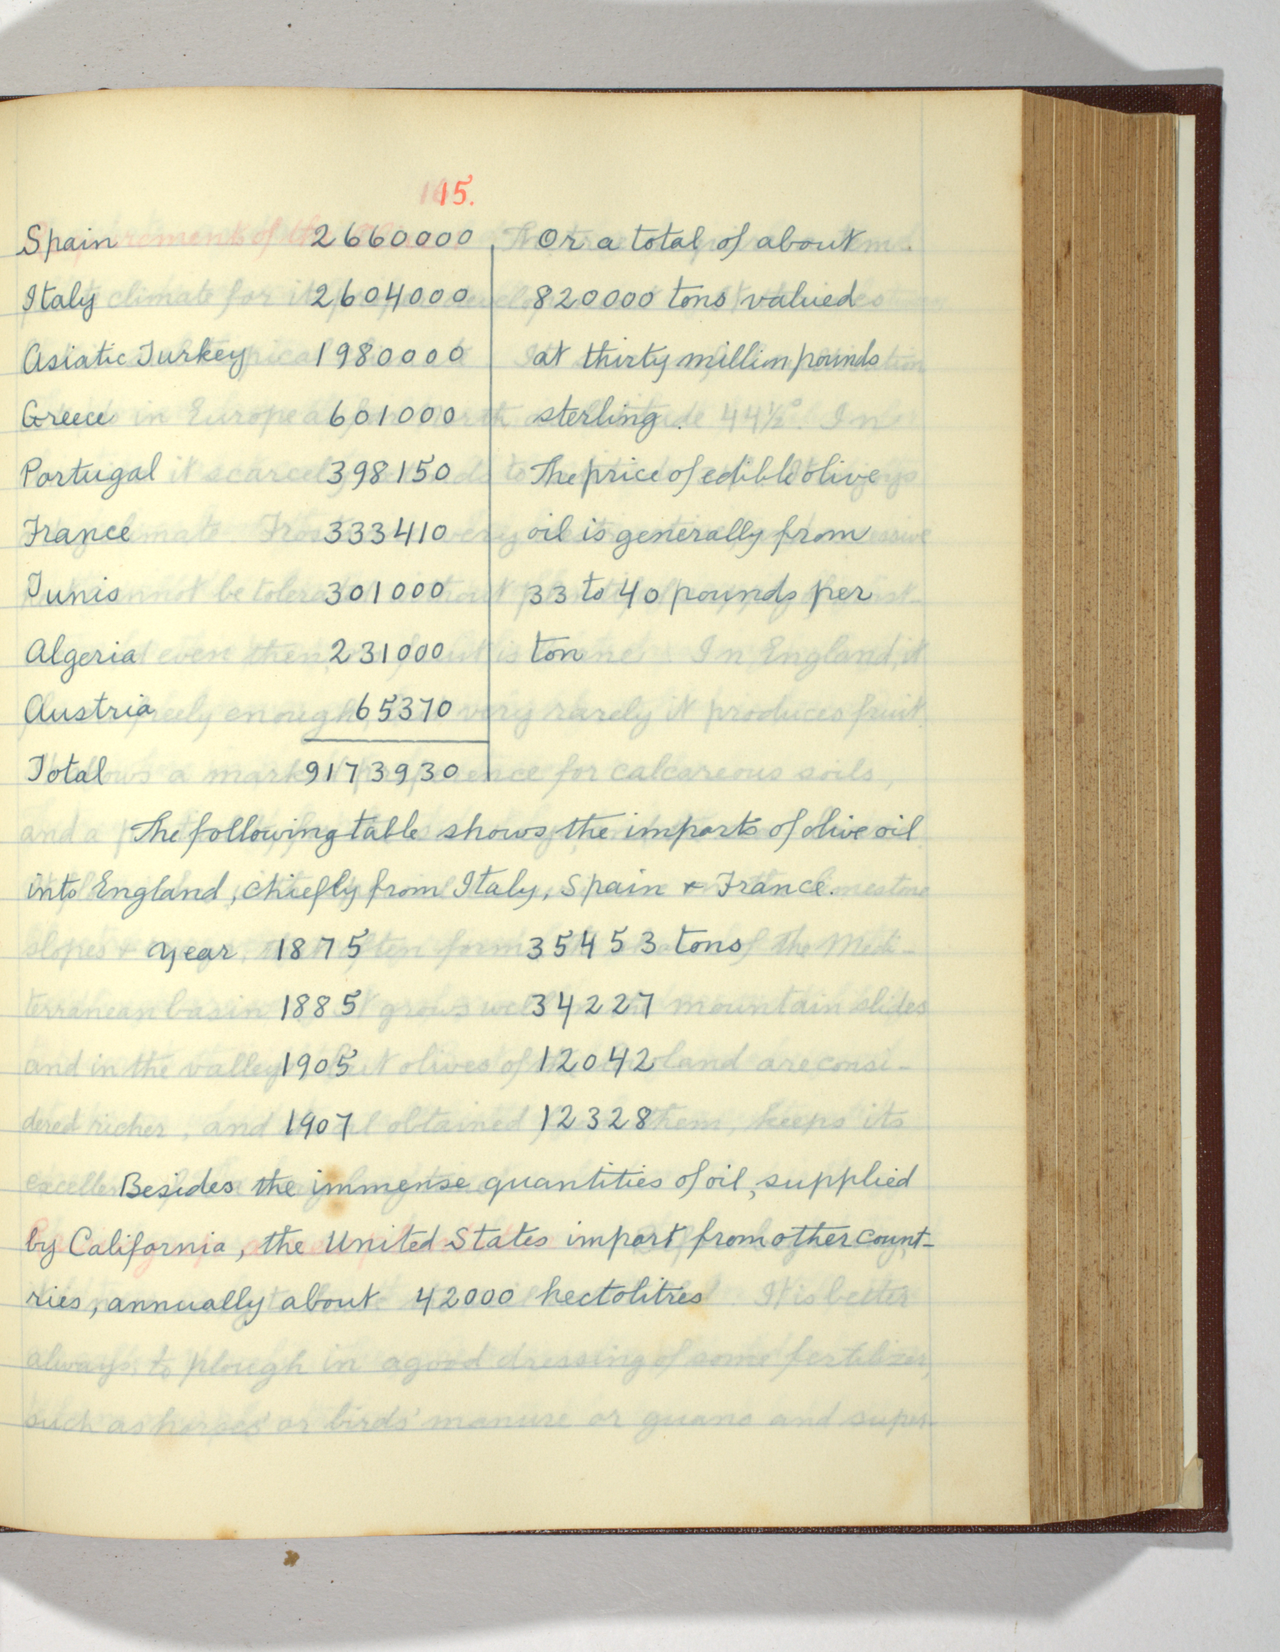 15.
Spain 2660000 Or a total of about
Italy 2604000 820000 tons valued
Asiatic Turkey 1980000 at thirty million pounds
Greece 601000 sterling.
Portugal 398150 The price of edible olive
France 333410 oil is generally from
Tunis 301000 33 to 40 pounds per
Algeria 231000 ton
Austria 65370
Total 9173930
The following table shows the imports of olive oil
into England, chiefly from Italy, Spain & France.
Year 1875 35453 tons
1885 34227
1905 12042
1907 12328
Besides the immense quantities of oil, supplied
by California, the United States import from other count-
ries, annually about 42000 hectolitres